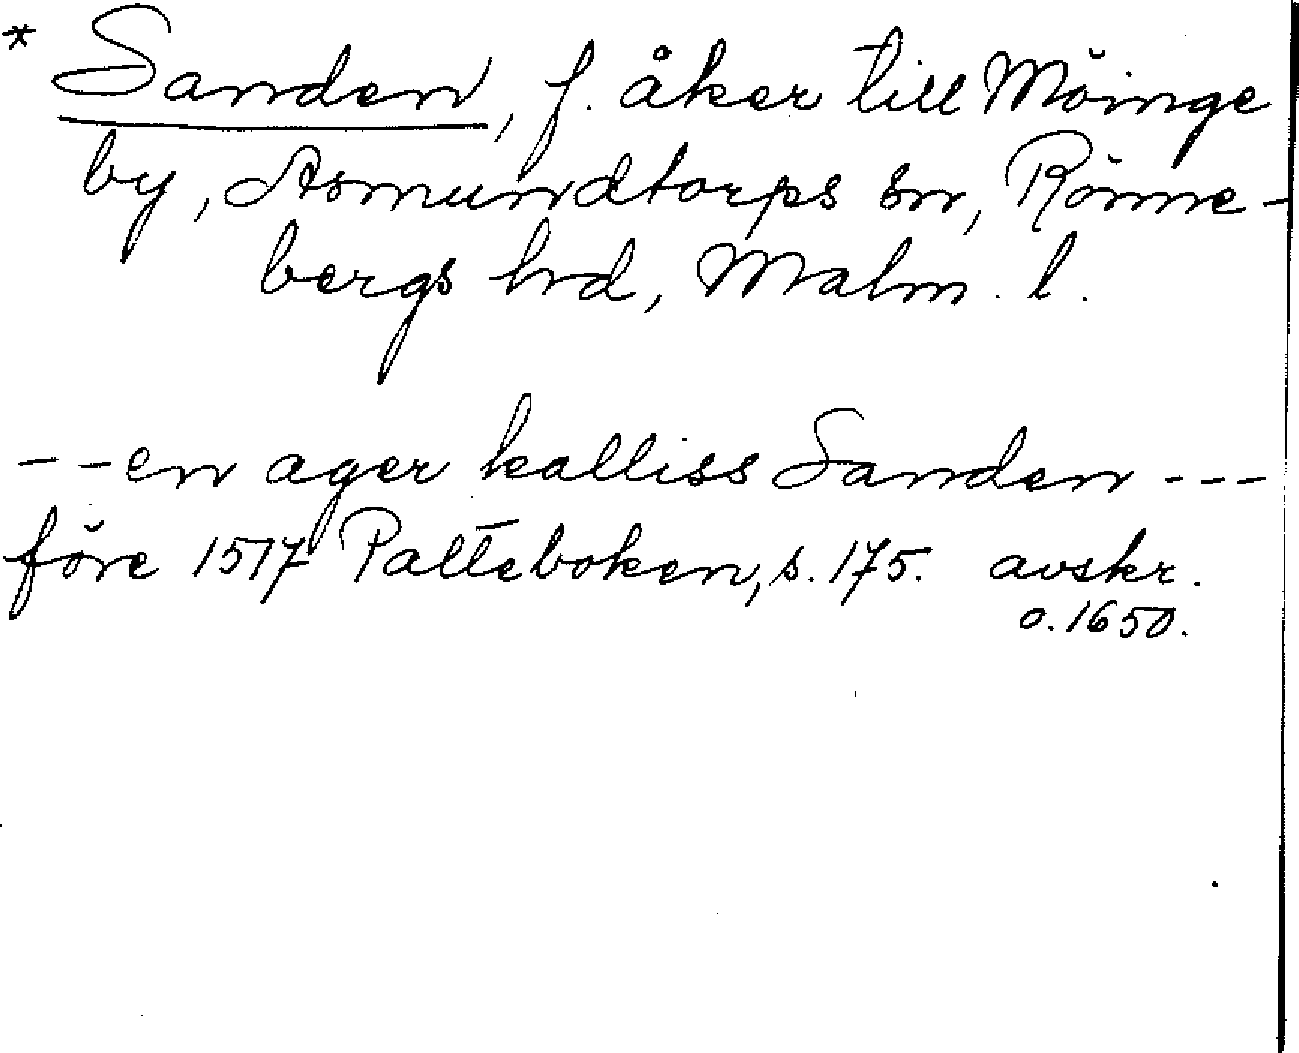 * Sanden, f. åker till Möinge
by, Asmundtorps sn, Rönne-
bergs hd, Malm. l.
- - en ager kalliss Sanden - - -
före 1517 Palteboken, s. 175. avskr.
o. 1650.